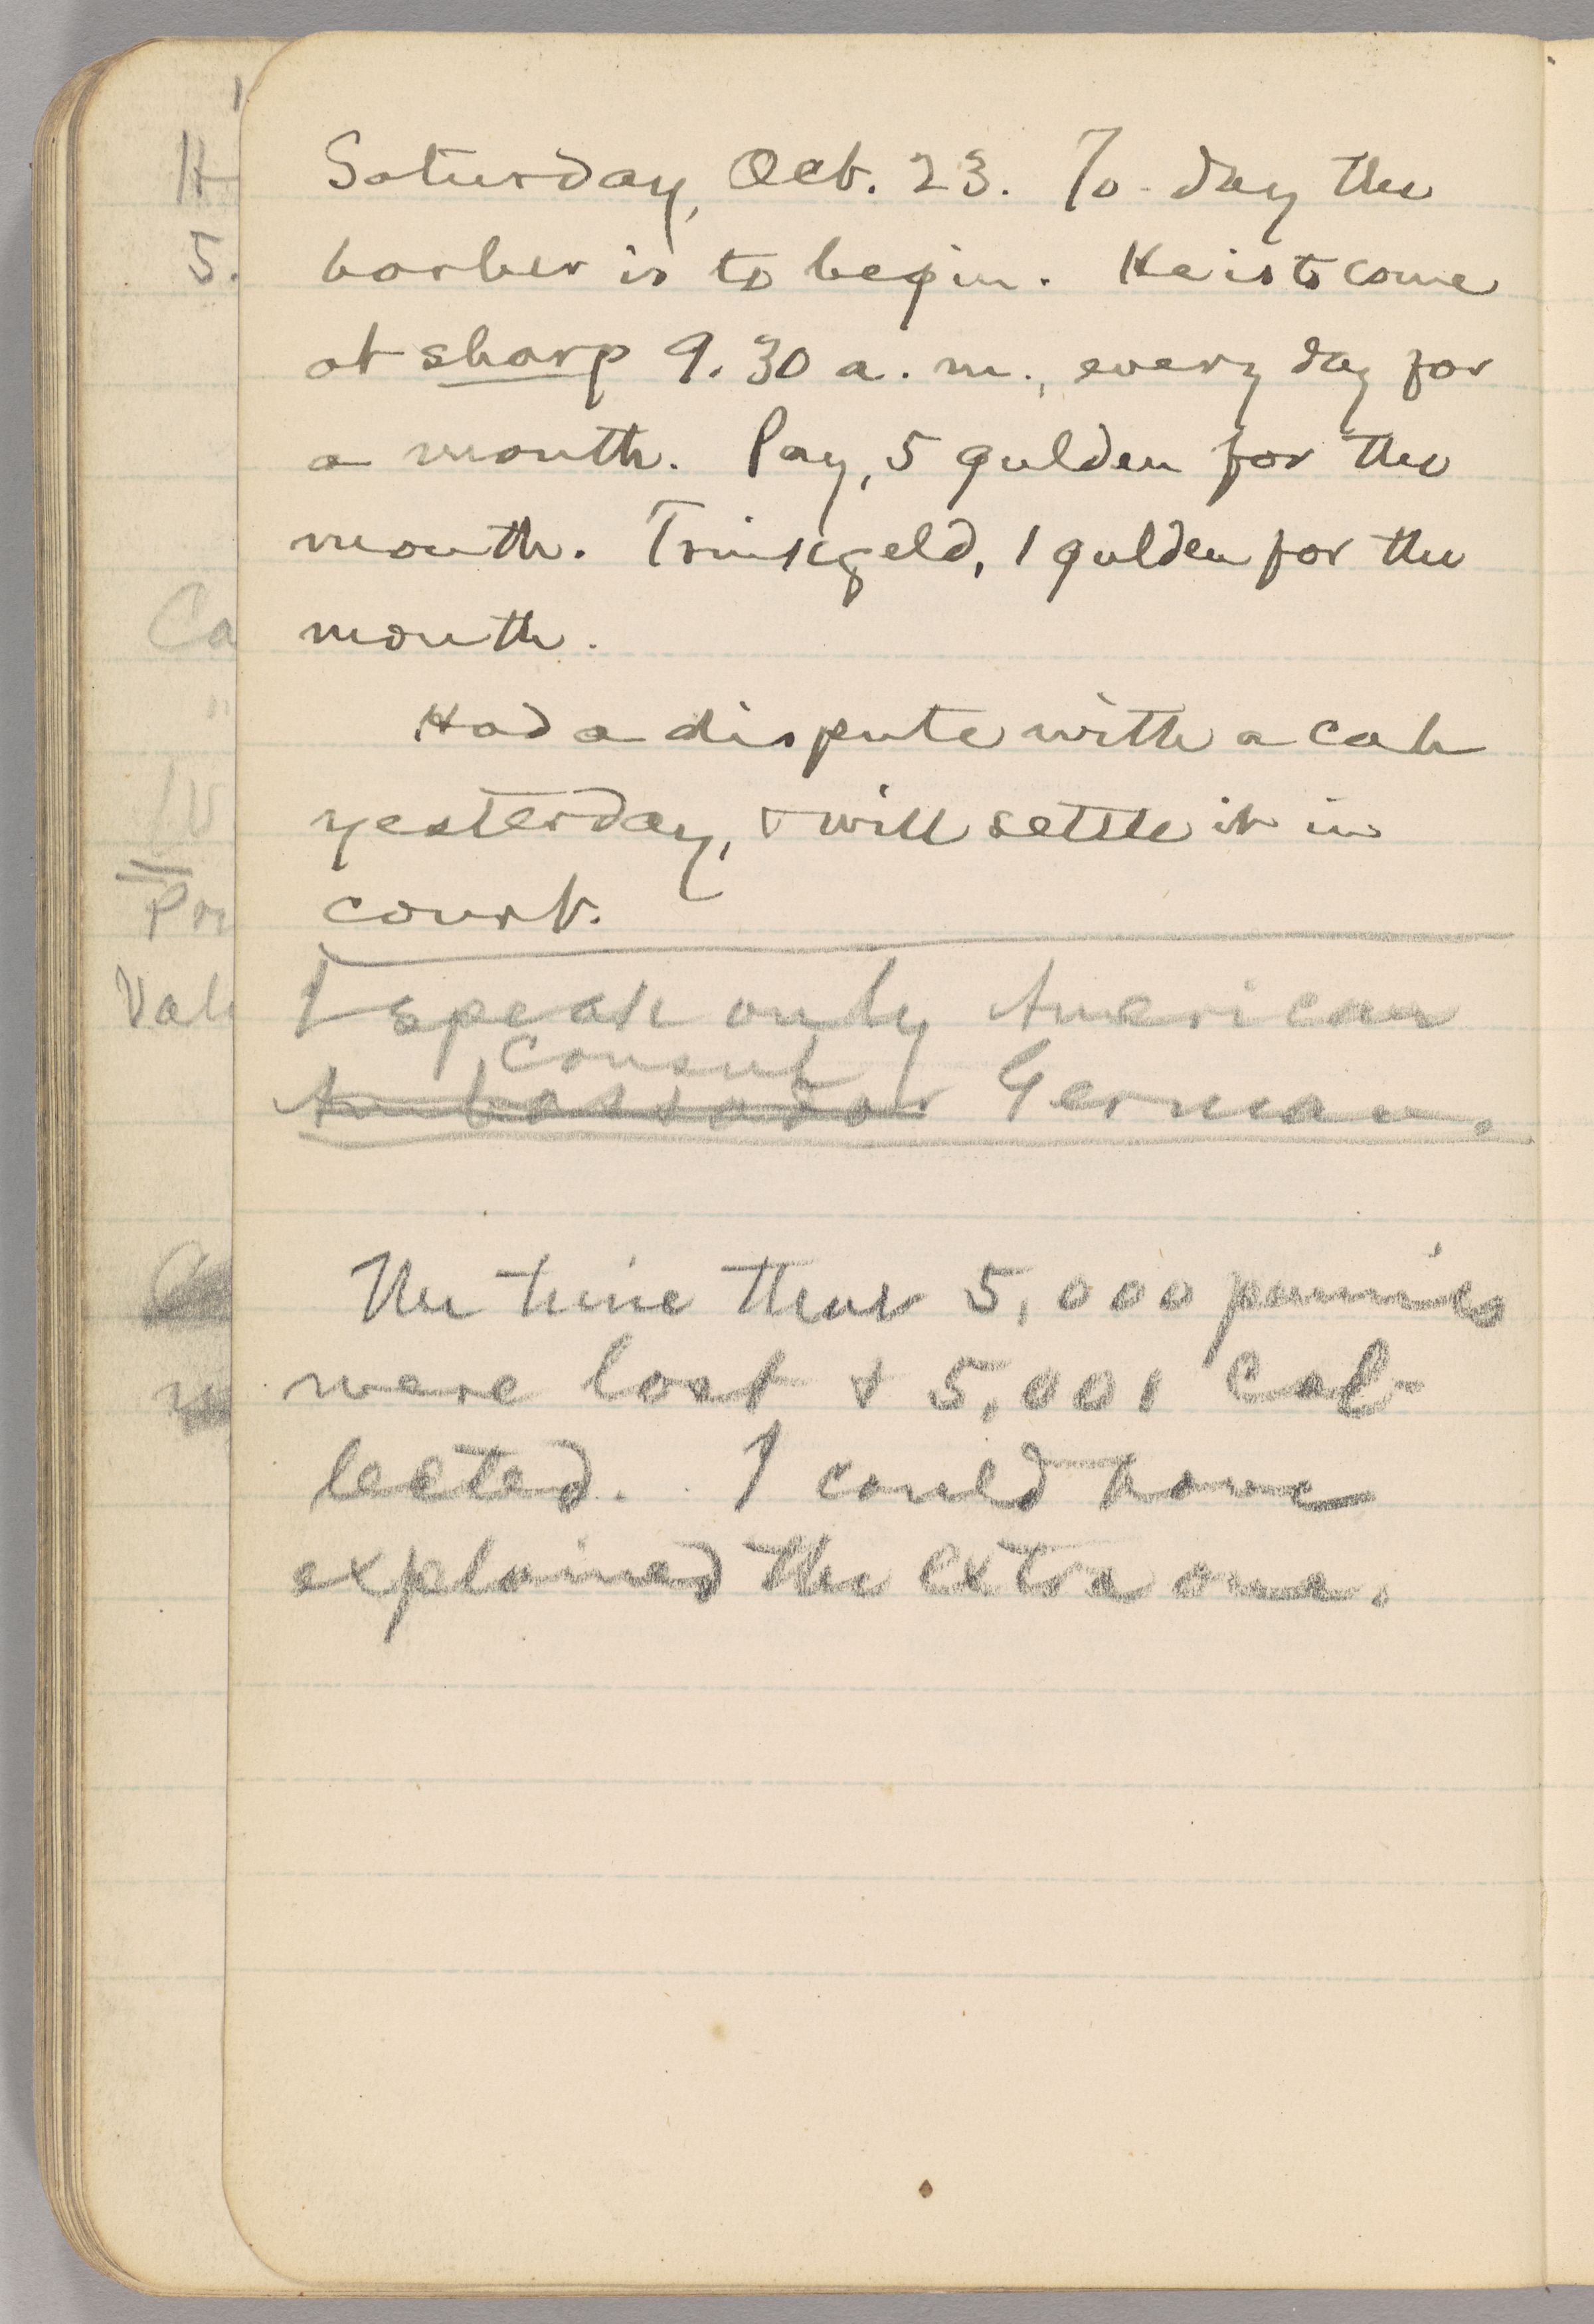 H
5.
Ca
"
Pri
Val
Saturday, Oct. 23. To-day the
barber is to begin. He is to come
at sharp 9.30 a. m., every day for
a month. Pay, 5 gulden for the
month. Trinkgeld, 1 gulden for the
month.
Had a dispute with a cab
yesterday, & will settle it in
court.
I speak only American
Consul
Ambassador German.
The time that 5,000 pennies
were lost & 5,001 col-
lected. I could have
explained the extra one.